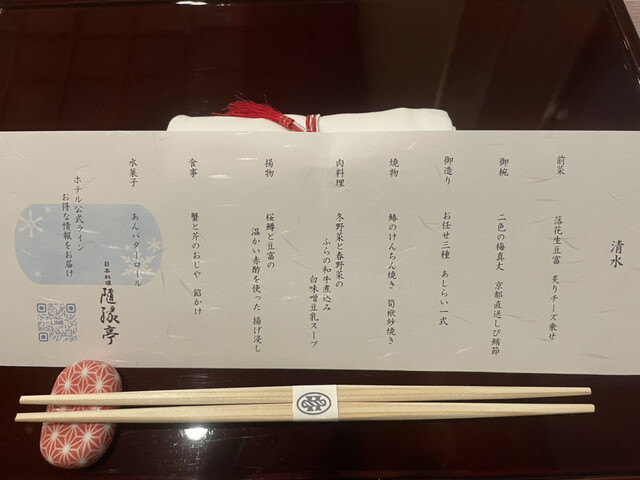 清水
前菜　落花生豆富　炙りチーズ乗せ
御椀　二色の梅真丈　京都直送しび鮪節
御造り　お任せ三種　あしらい一式
焼物　鰆のけんちん焼き　筍袱紗焼き
肉料理　冬野菜と春野菜の
ふらの和牛煮込み
白味噌豆乳スープ
揚物　桜鱒と豆富の
温かい赤酢を使った 揚げ浸し
食事　蟹と芹のおじや　餡かけ
水菓子　あんバターロール
日本料理
隨縁亭
ホテル公式ライン
お得な情報をお届け
LINE